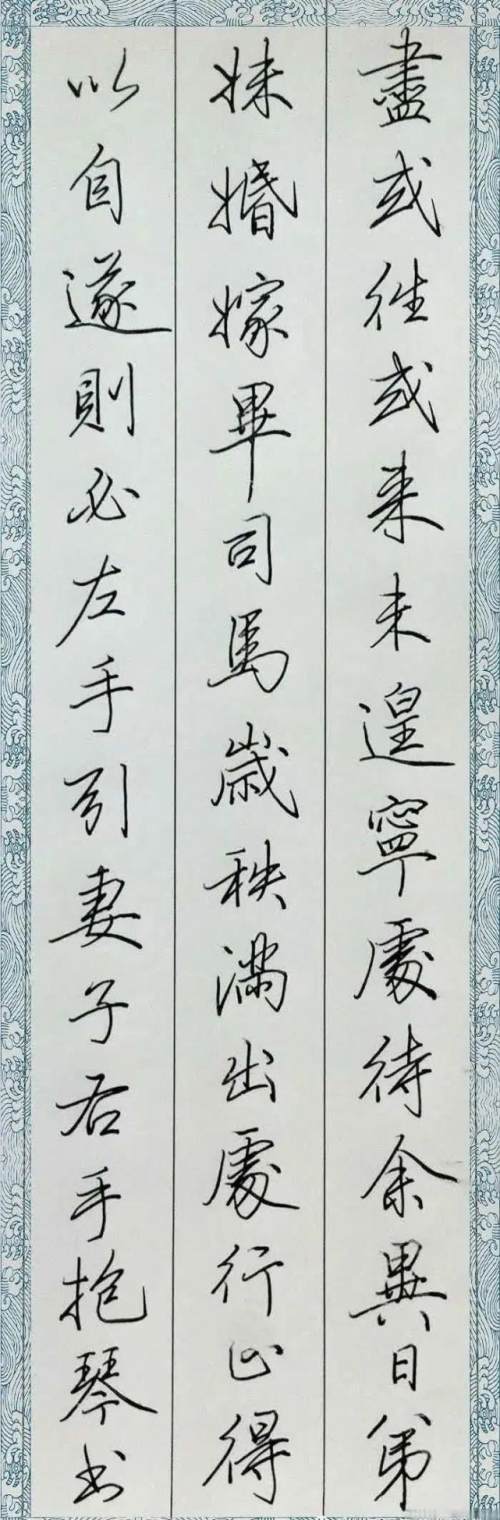 盡或往或来未遑寧處待余異日弟
妹婚嫁畢司馬歲秩滿出處行止得
以自遂則必左手引妻子右手抱琴書